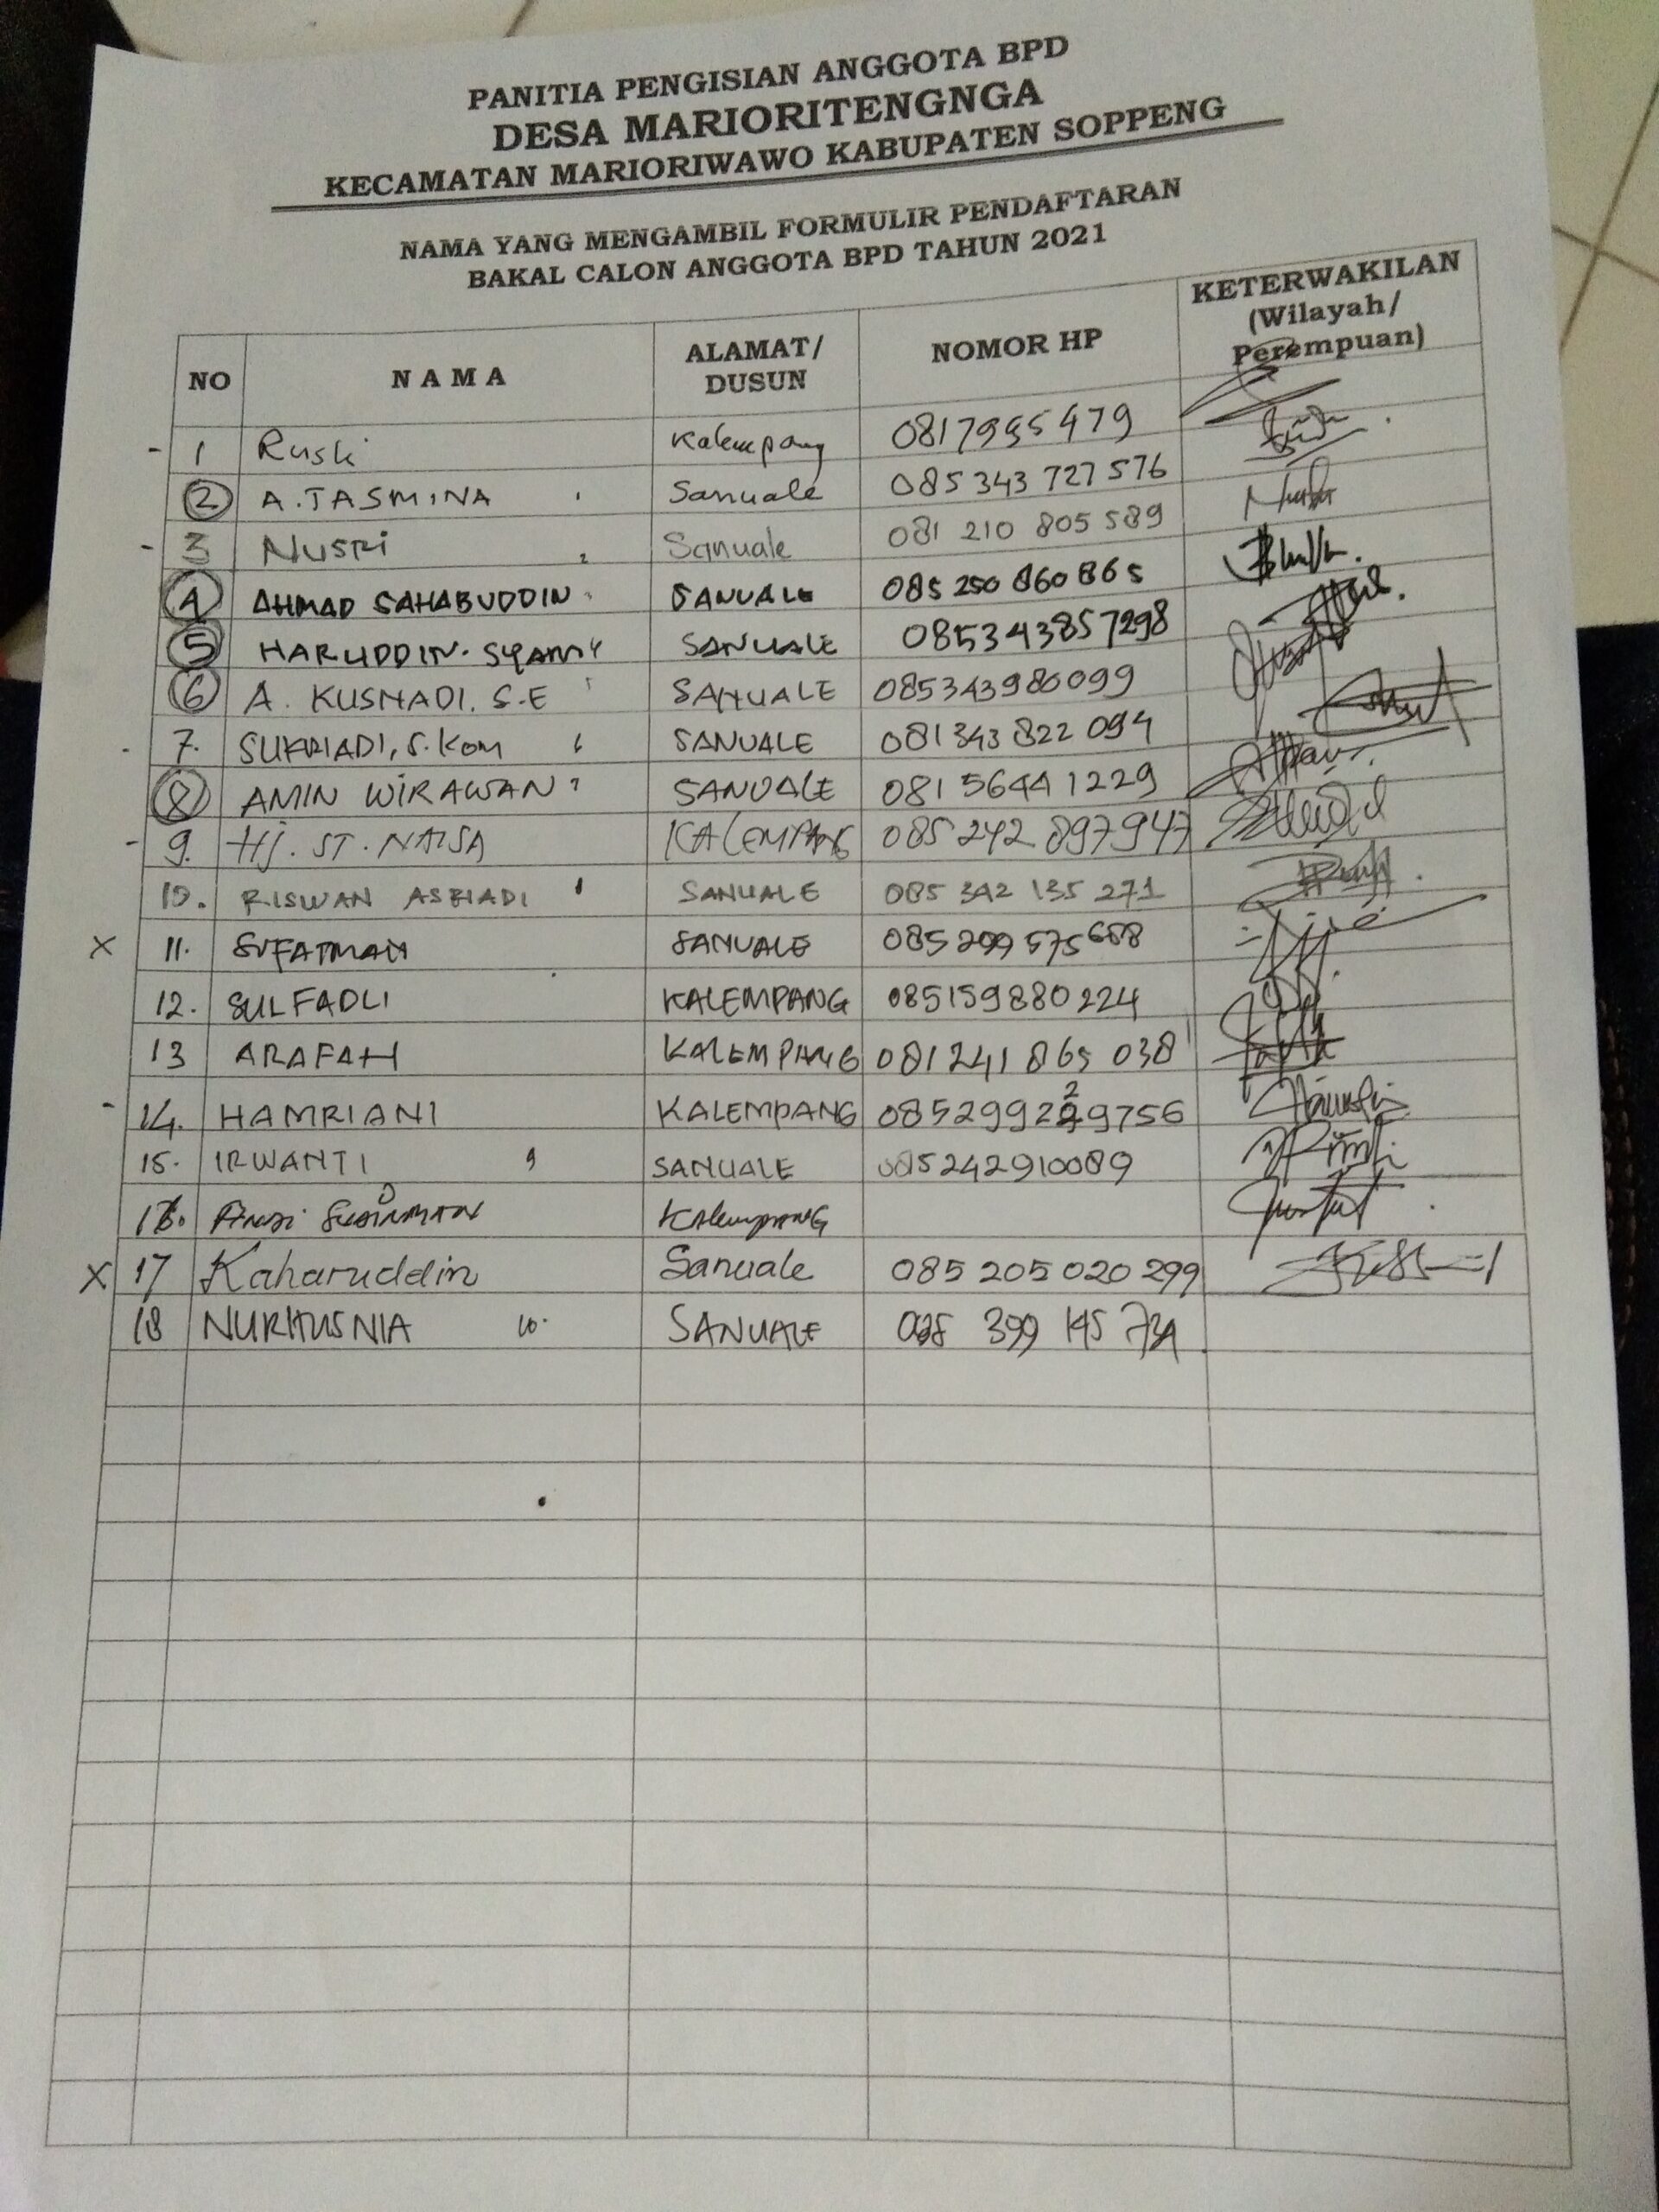 PANITIA PENGISIAN ANGGOTA BPD
DESA MARIORITENGNGA
KECAMATAN MARIORIWAWO KABUPATEN SOPPENG
NAMA YANG MENGAMBIL FORMULIR PENDAFTARAN
BAKAL CALON ANGGOTA BPD TAHUN 2021
NO NAMA ALAMAT/ DUSUN NOMOR HP KETERWAKILAN (Wilayah/ Perempuan)
- 1 Rusli Kalempang 0817995479
2 A. TASMINA Sanuale 085 343 727 576
- 3 NUSRi Sanuale 081 210 805 589
4 AHMAD SAHABUDDIN SANUALE 085 250 860 865
5 HARUDDIN. SYAM SANUALE 085343857298
6 A. KUSNADI. S.E SANUALE 085343980099
- 7. SUKRIADI, S.Kom 6 SANUALE 081343 822 094
8 AMIN WIRAWAN 7 SANUALE 081 5644 1229
- 9. Hj. ST. NAISA KALEMPANG 085 242 897947
10. RISWAN ASRIADI SANUALE 085 342 135 271
X 11. SANUALE 085 299 575 688
12. SULFADLI KALEMPANG 085159880224
13 ARAFAH KALEMPANG 081241 865 038
- 14. HAMRIANI KALEMPANG
15. IRWANTI 9 SANUALE 085242910089
16. Kalempang
X 17 Kaharuddin Sanuale 085 205 020 299
18 NURHUSNIA 10. SANUALE 399 145